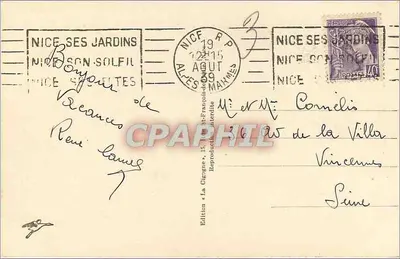 NICE SES JARDINS
NICE SON SOLEIL
NICE SES FÊTES
NICE R.P.
19
12H15
AOUT
39
ALPES MARMES
NICE SES JARDINS
NICE SON SOLEIL
NICE SES
40
3
Bonjour de
Vacances
René
Mr & Mme Cornelis
36 de la Villa
Vincennes
Seine
Edition « La Cigogne », St-François-de
Reproduction interdite
CPAPHIL